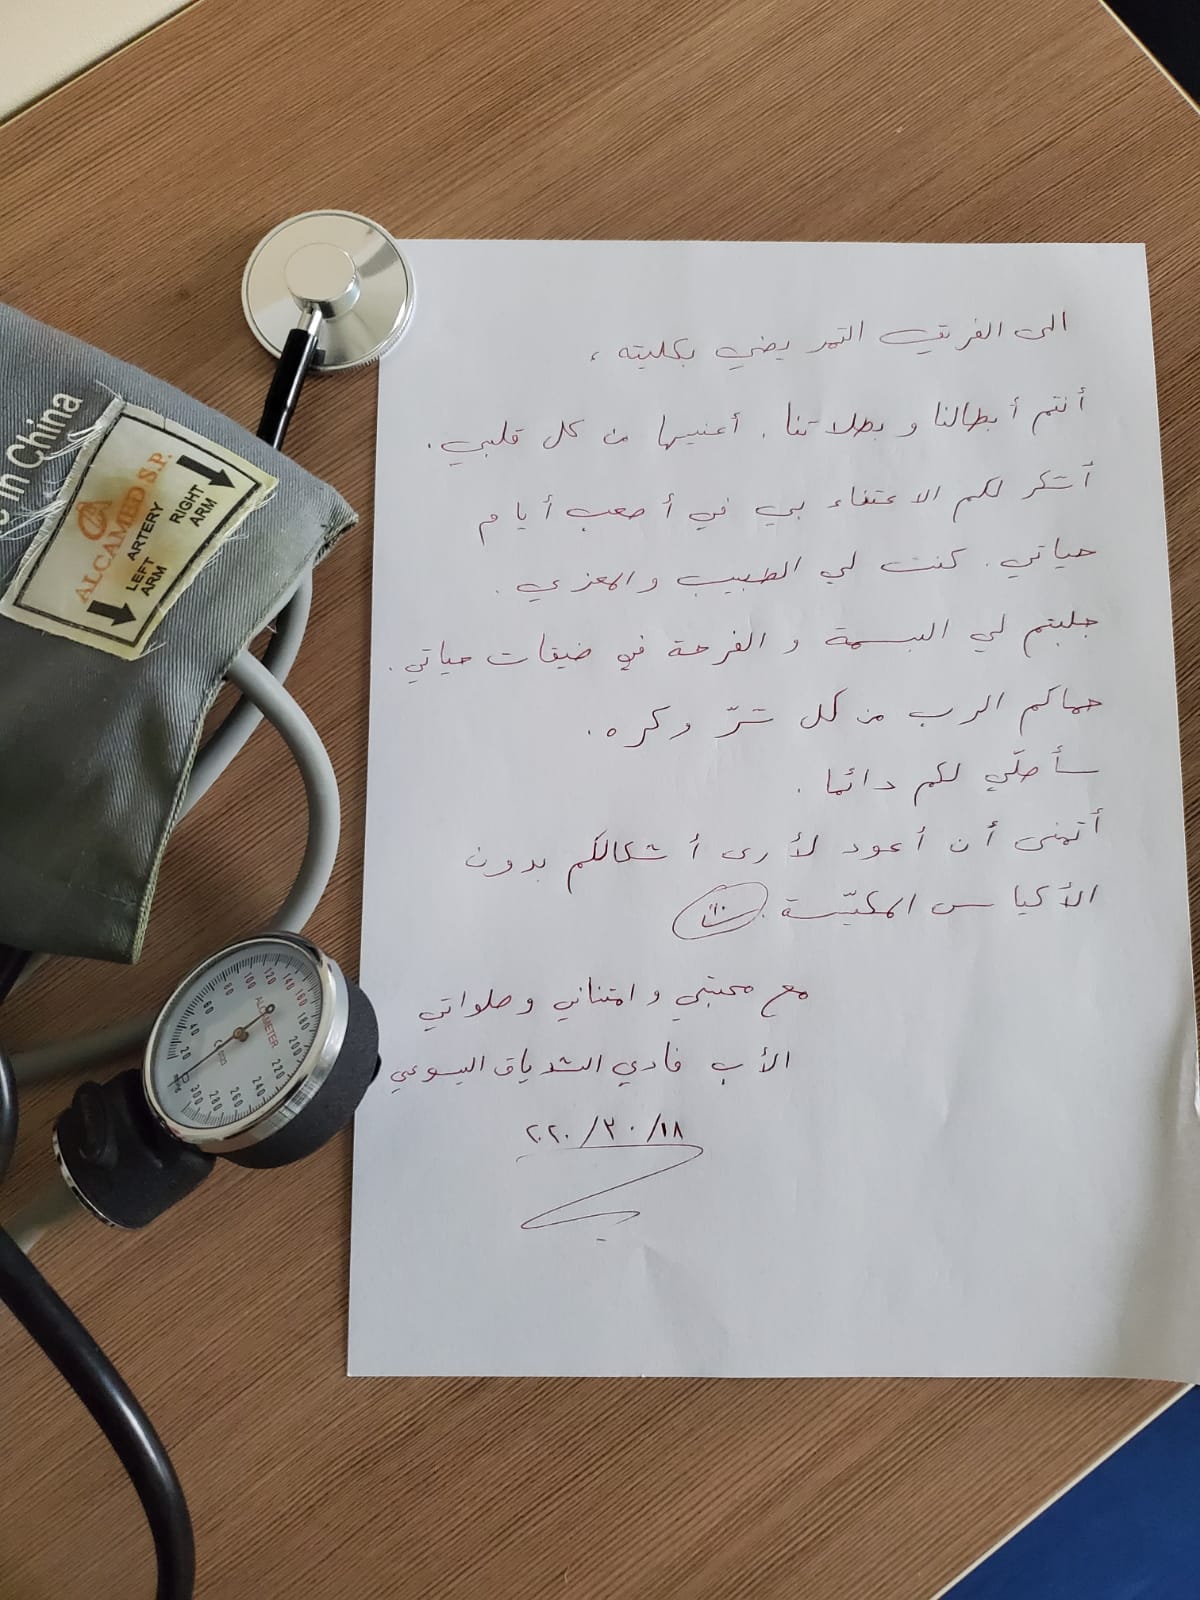 الى الفريق التمريضي بكليته،
أنتم أبطالنا و بطلاتنا. أعنيها من كل قلبي.
أشكر لكم الاعتناء بي في أصعب أيام
حياتي. كنتم لي الطبيب والمعزي.
جلبتم لي البسمة و الفرحة في ضيقات حياتي.
حماكم الرب من كل شرّ وكره.
سأصلّي لكم دائما.
أتمنى أن أعود لأرى أشكالكم بدون
الأكياس المكيّسة.
مع محبتي و امتناني وصلواتي
الأب فادي الشدياق اليسوعي
١٨/٣٠/٢٠٢٠
in China
ALCAMED S.P.
ARTERY
LEFT ARM
RIGHT ARM
ALCOMETER
20 40 60 80 100 120 140 160 180 200 220 240 260 280 300